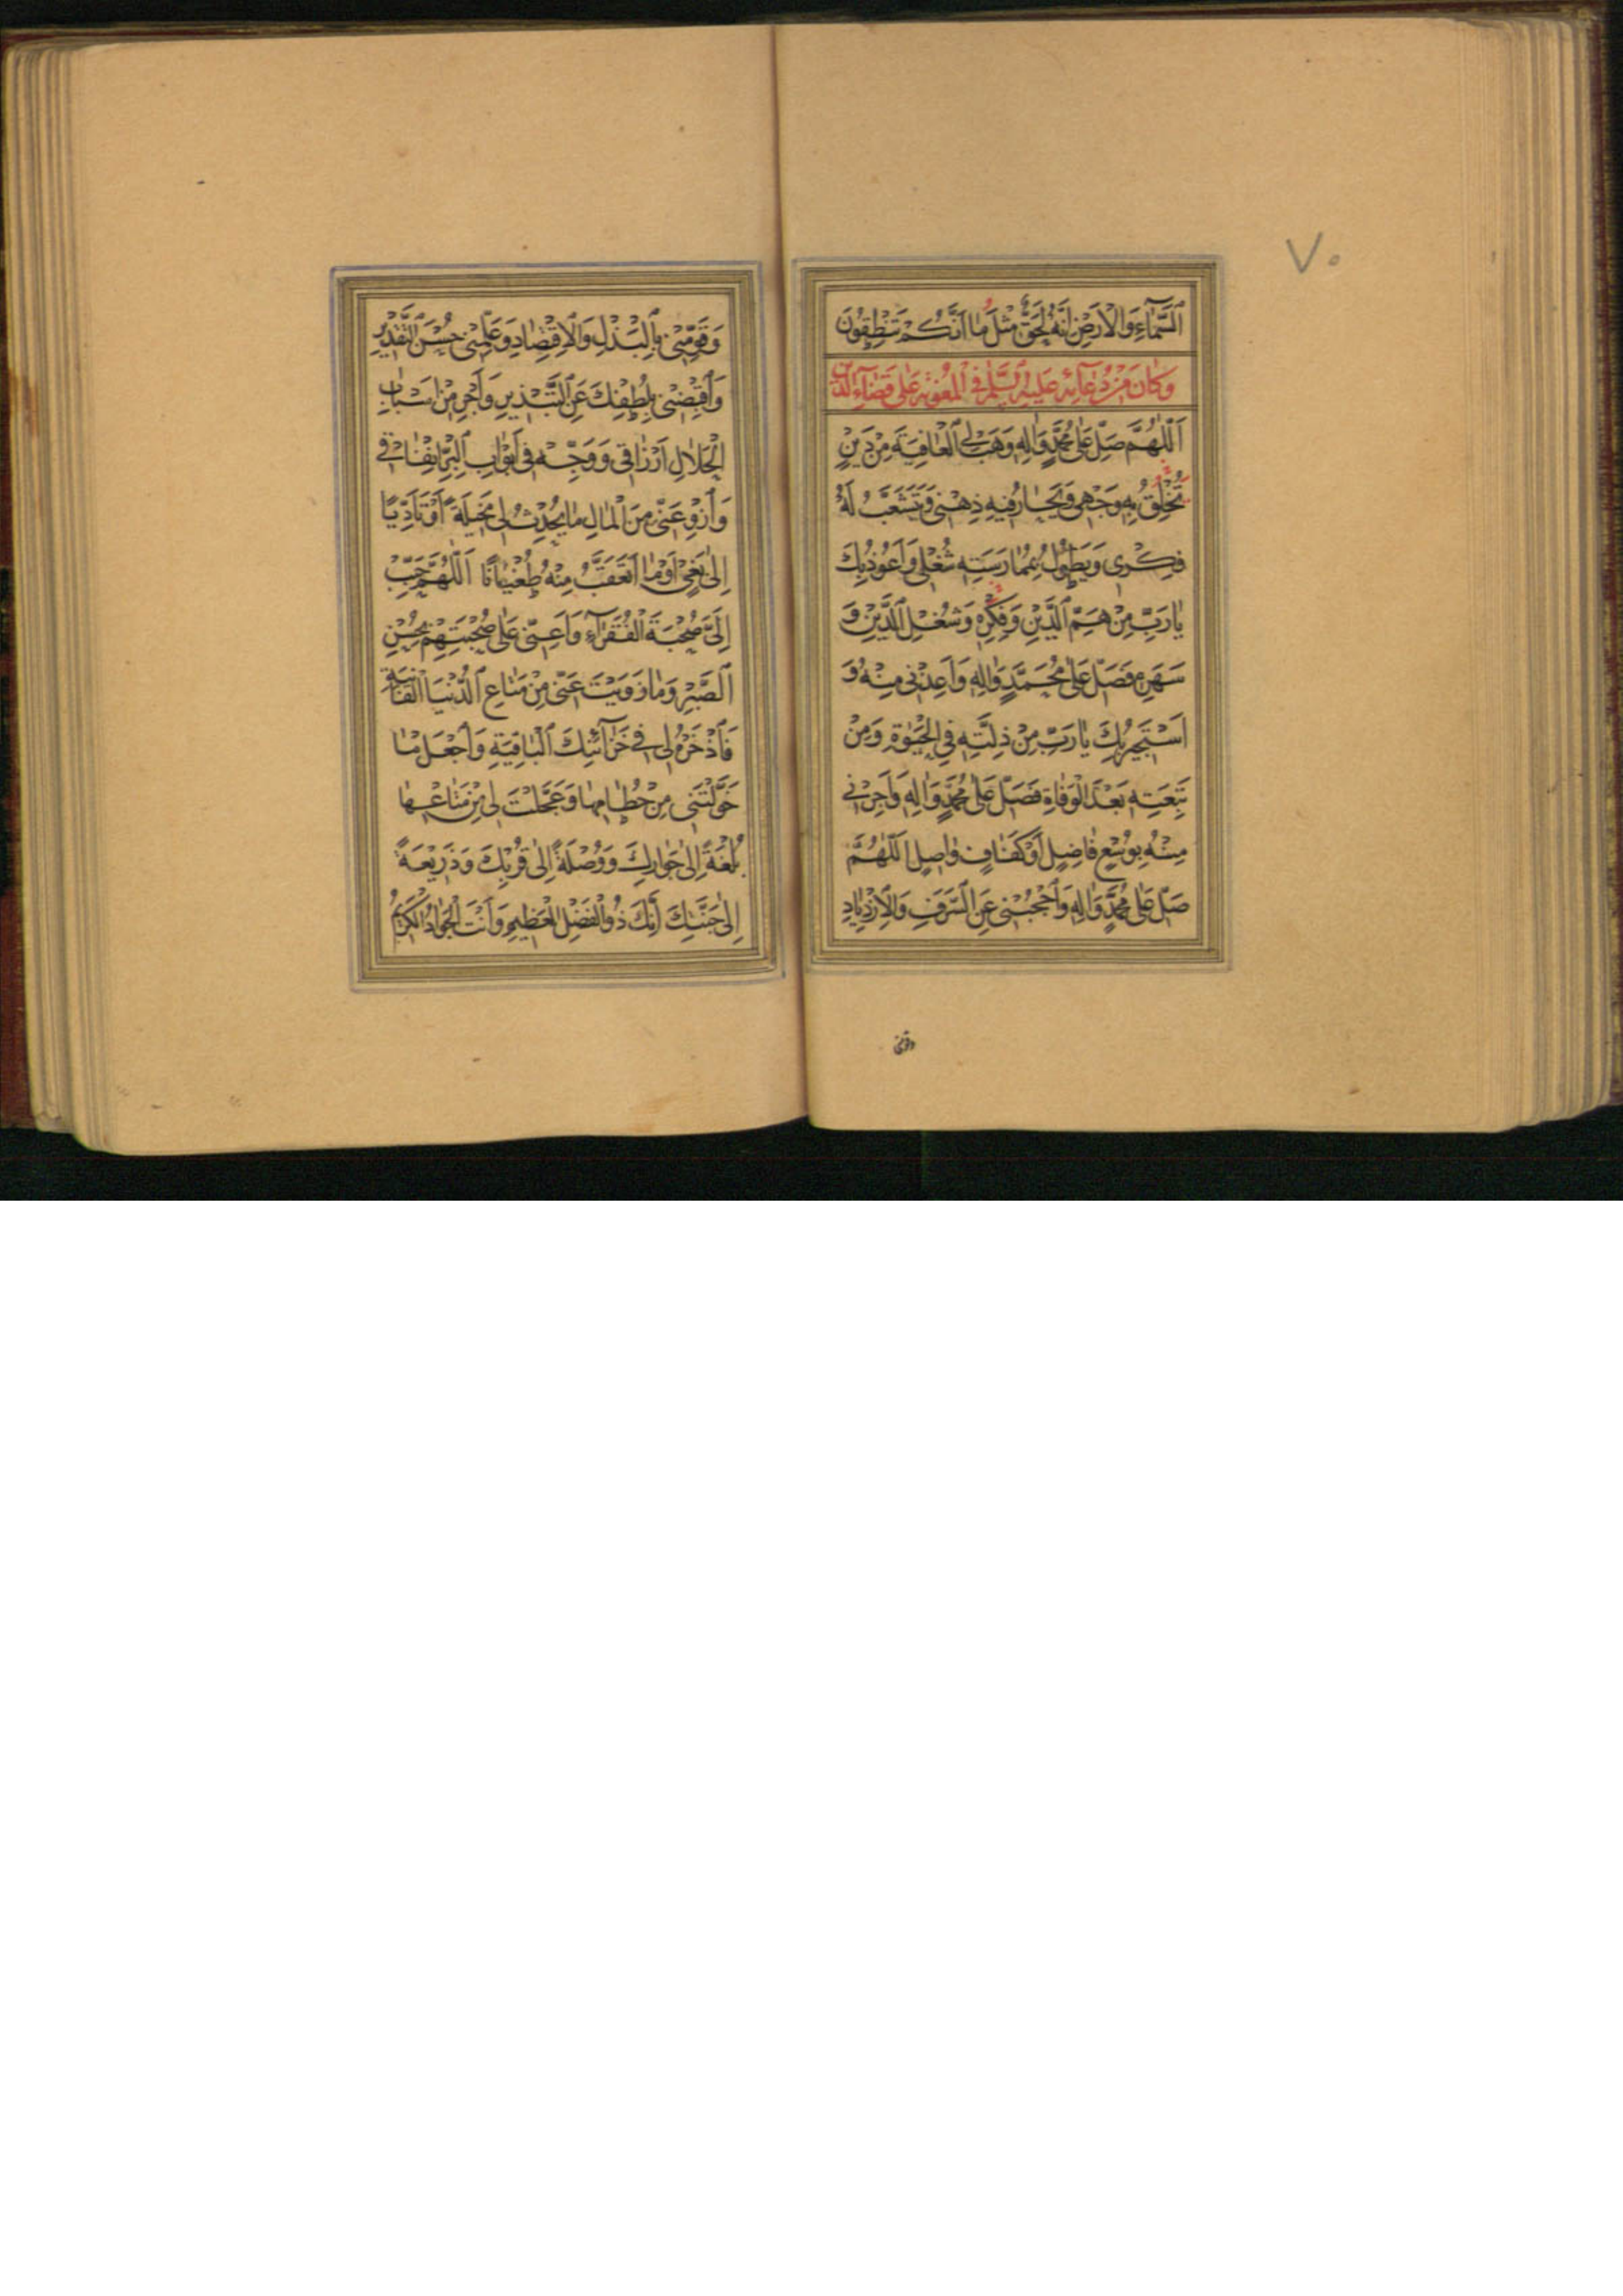 ٧٠
السَّمَاءِ وَالْاَرْضِ اِنَّهُ لَحَقٌّ مِثْلَ مٰا اَنَّكُمْ تَنْطِقُونَ
وَكٰانَ مِنْ دُعٰآئِهِ عَلَيْهِ السَّلٰمُ فِى الْمَعُونَةِ عَلٰى قَضٰاءِ الدَّيْنِ
اَللّٰهُمَّ صَلِّ عَلٰى مُحَمَّدٍ وَاٰلِهِ وَهَبْ لِىَ الْعٰافِيَةَ مِنْ دَيْنٍ
تُخْلِقُ بِهِ وَجْهِى وَيَحٰارُ فِيهِ ذِهْنِى وَيَتَشَعَّبُ لَهُ
فِكْرِى وَيَطُولُ بِمُمٰارَسَتِهِ شُغْلِى وَاَعُوذُ بِكَ
يٰا رَبِّ مِنْ هَمِّ الدَّيْنِ وَفِكْرِهِ وَشُغْلِ الدَّيْنِ وَ
سَهَرِهِ فَصَلِّ عَلٰى مُحَمَّدٍ وَاٰلِهِ وَاَعِذْنِى مِنْهُ وَ
اَسْتَجِيرُ بِكَ يٰا رَبِّ مِنْ ذِلَّتِهِ فِى الْحَيٰوةِ وَمِنْ
تَبِعَتِهِ بَعْدَ الْوَفٰاةِ فَصَلِّ عَلٰى مُحَمَّدٍ وَاٰلِهِ وَاَجِرْنِى
مِنْهُ بِوُسْعٍ فٰاضِلٍ اَوْ كَفٰافٍ وٰاصِلٍ اَللّٰهُمَّ
صَلِّ عَلٰى مُحَمَّدٍ وَاٰلِهِ وَاحْجُبْنِى عَنِ السَّرَفِ وَالْاِزْدِيٰادِ
وقومنى
وَقَوِّمْنِى بِالْبَذْلِ وَالْاِقْتِصٰادِ وَعَلِّمْنِى حُسْنَ التَّقْدِيرِ
وَاقْبِضْنِى بِلُطْفِكَ عَنِ التَّبْذِيرِ وَاَجْرِ مِنْ اَسْبٰابِ
الْحَلٰالِ اَرْزٰاقِى وَوَجِّهْ فِى اَبْوٰابِ الْبِرِّ اِنْفٰاقِى
وَازْوِ عَنِّى مِنَ الْمٰالِ مٰا يُحْدِثُ لِى مَخِيلَةً اَوْ تَاَدِّيًا
اِلٰى بَغْىٍ اَوْ مٰا اَتَعَقَّبُ مِنْهُ طُغْيٰانًا اَللّٰهُمَّ حَبِّبْ
اِلَىَّ صُحْبَةَ الْفُقَرٰآءِ وَاَعِنِّى عَلٰى صُحْبَتِهِمْ بِحُسْنِ
الصَّبْرِ وَمٰا زَوَيْتَ عَنِّى مِنْ مَتٰاعِ الدُّنْيَا الْفٰانِيَةِ
فَاذْخَرْهُ لِى فِى خَزٰآئِنِكَ الْبٰاقِيَةِ وَاجْعَلْ مٰا
خَوَّلْتَنِى مِنْ حُطٰامِهٰا وَعَجَّلْتَ لِى مِنْ مَتٰاعِهٰا
بُلْغَةً اِلٰى جَوٰارِكَ وَوُصْلَةً اِلٰى قُرْبِكَ وَذَرِيعَةً
اِلٰى جَنَّتِكَ اِنَّكَ ذُو الْفَضْلِ الْعَظِيمِ وَاَنْتَ الْجَوٰادُ الْكَرِيمُ